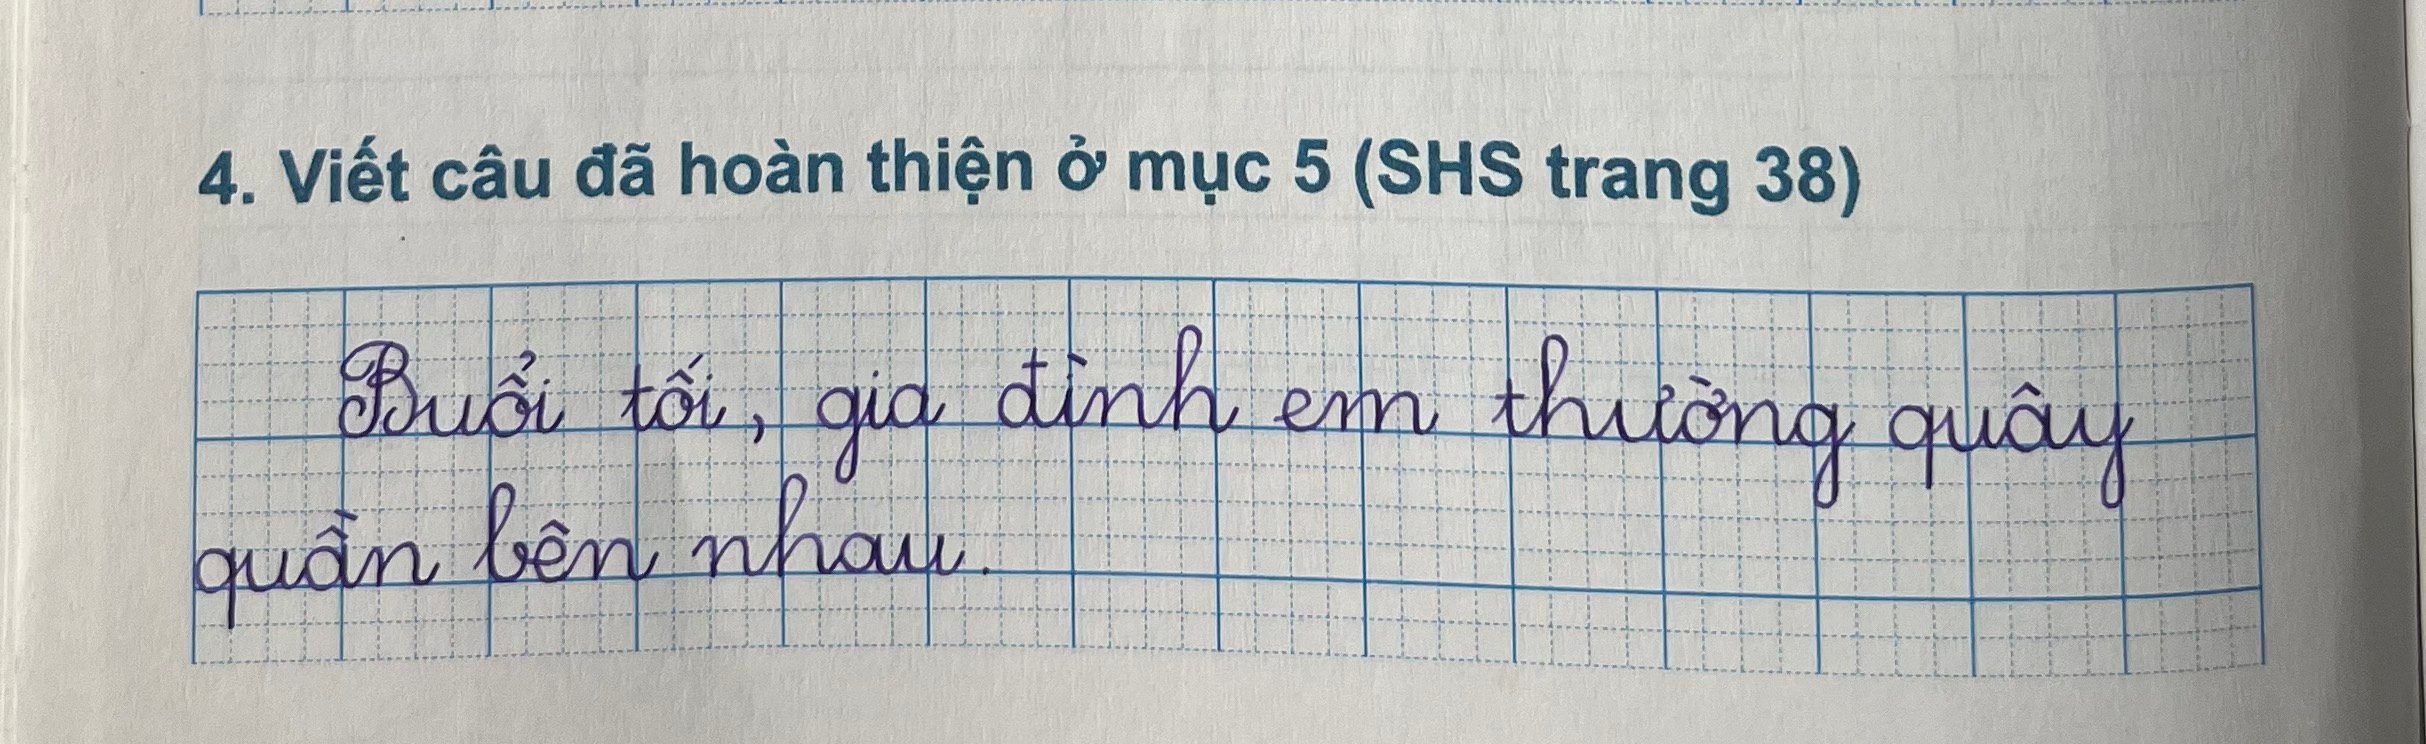 4. Viết câu đã hoàn thiện ở mục 5 (SHS trang 38)
Buổi tối, gia đình em thường quây
quần bên nhau.